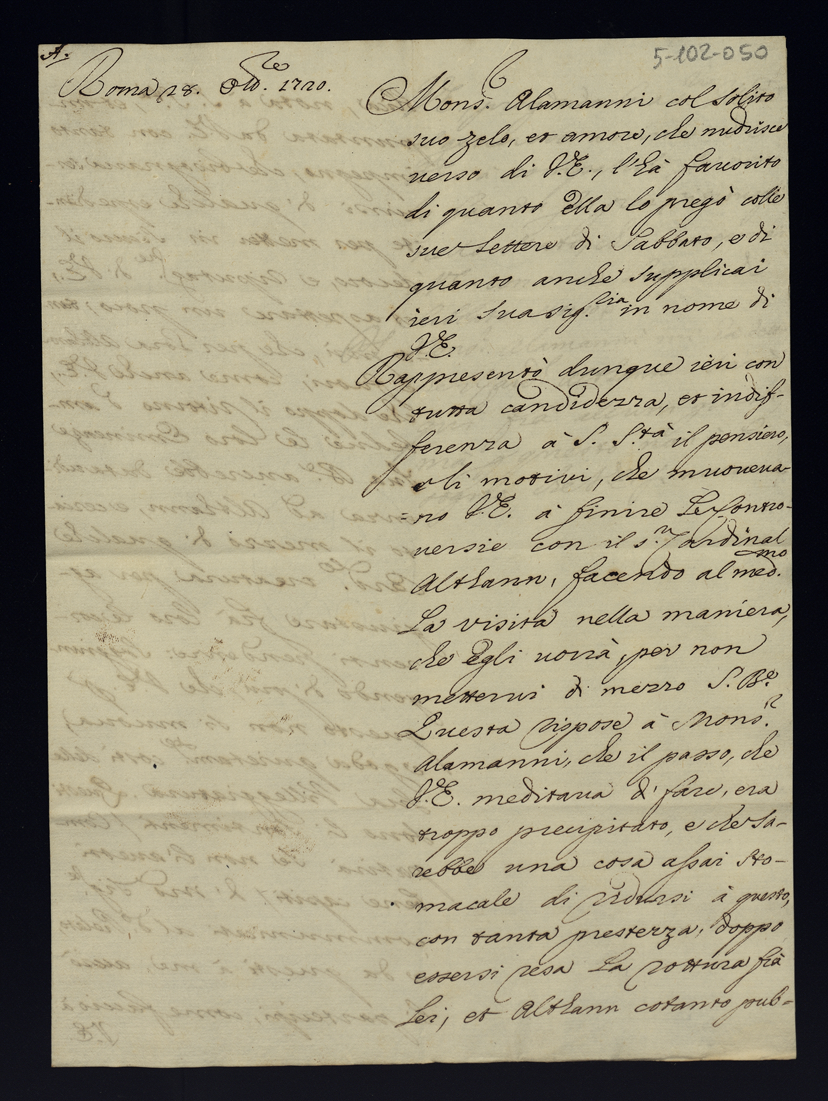 A.
5-102-050
Roma 28. Ott.re 1720.
Mons.r Alamanni col solito
suo zelo, et amore, che nudrisce
verso di V.E., l'hà favorito
di quanto Ella lo pregò colle
sue Lettere di Sabbato, e di
quanto anche supplicai
ieri Sua Sig.ria in nome di
V.E.
Rappresentò dunque ieri con
tutta candidezza, et indif-
ferenza à S. S.tà il pensiero,
e li motivi, che muoveva-
=no V.E. à finire le Contro-
versie con il S.r Cardinal
Althann, facendo al med.mo
La visita nella maniera,
che Egli vorrà, per non
mettervi di mezzo S. B.e
Questa rispose à Mons.r
Alamanni, che il passo, che
V.E. meditava di fare, era
troppo precipitato, e che sa-
rebbe una cosa assai sto-
macale di ridursi à questo,
con tanta prestezza, doppo
essersi resa La rottura frà
Lei, et Althann cotanto pub-